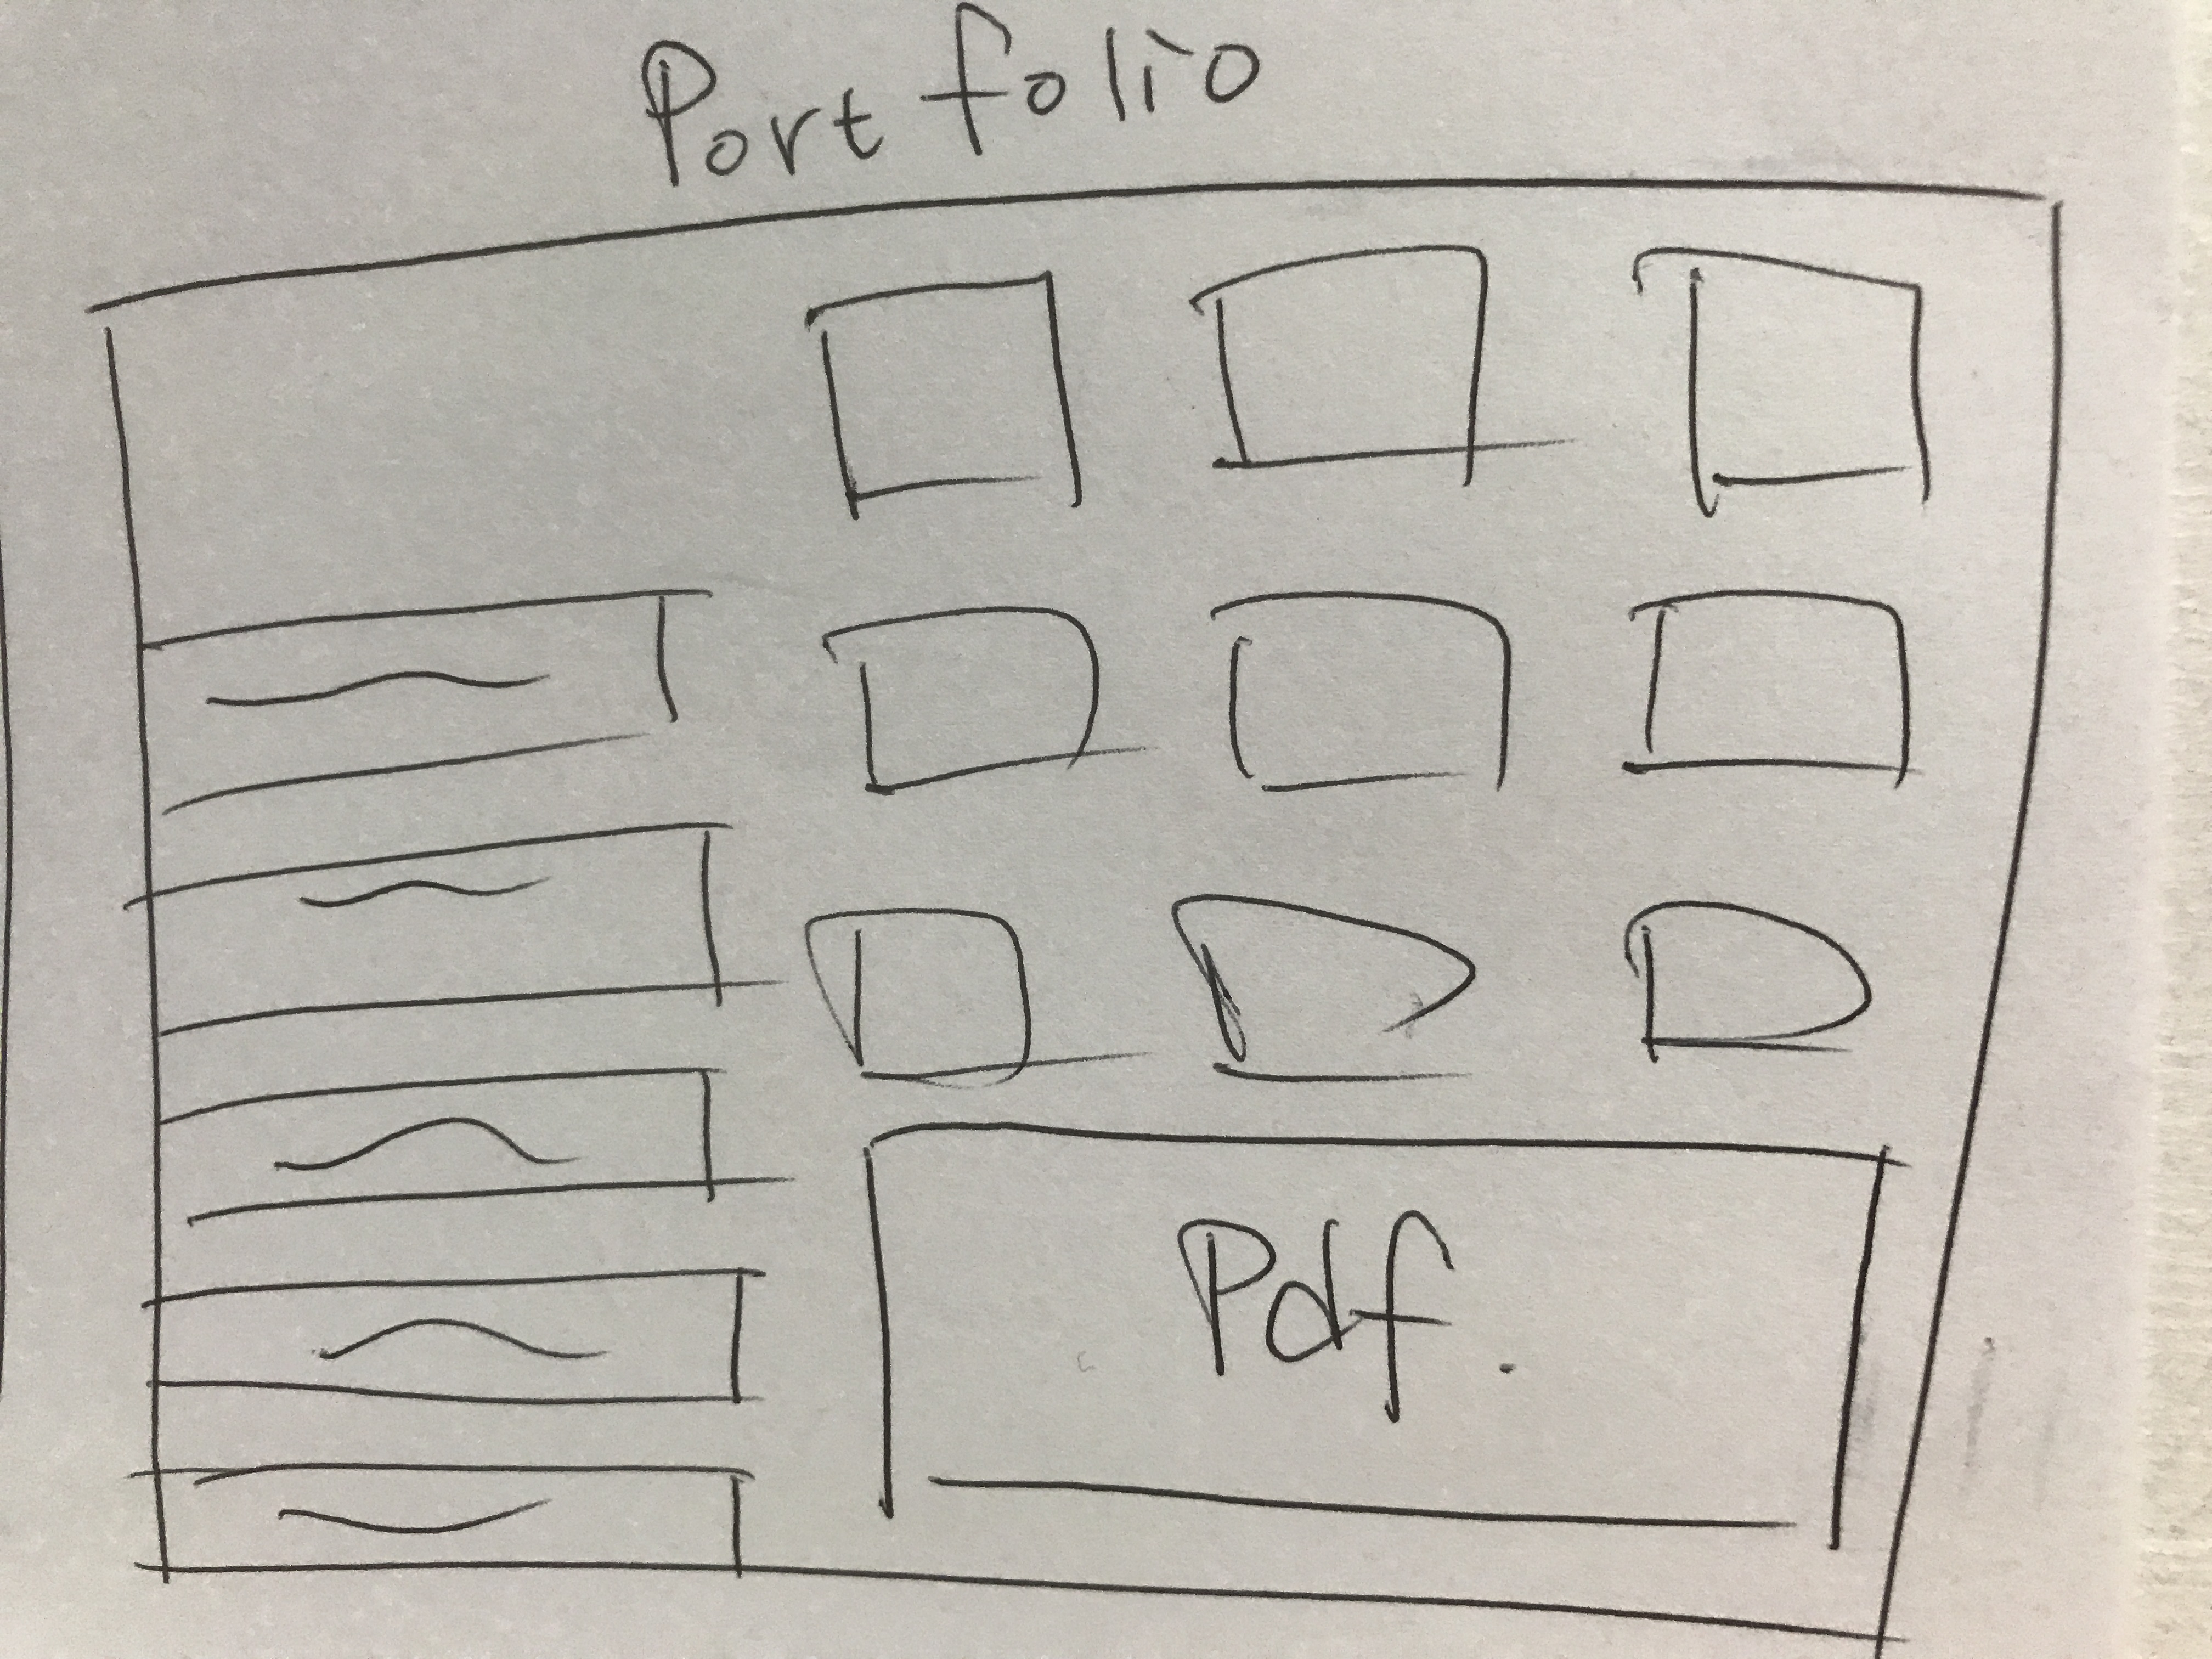 Portfolio
Pdf.